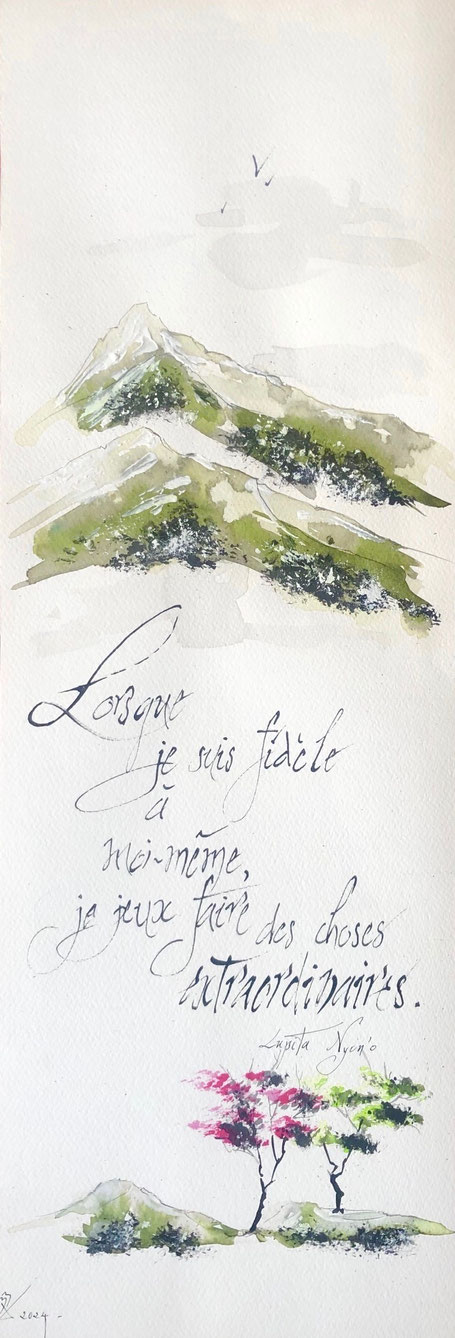 Lorsque
je suis fidèle
à
moi-même,
je jeux faire des choses
extraordinaires.
Lupita Nyon'o
2024